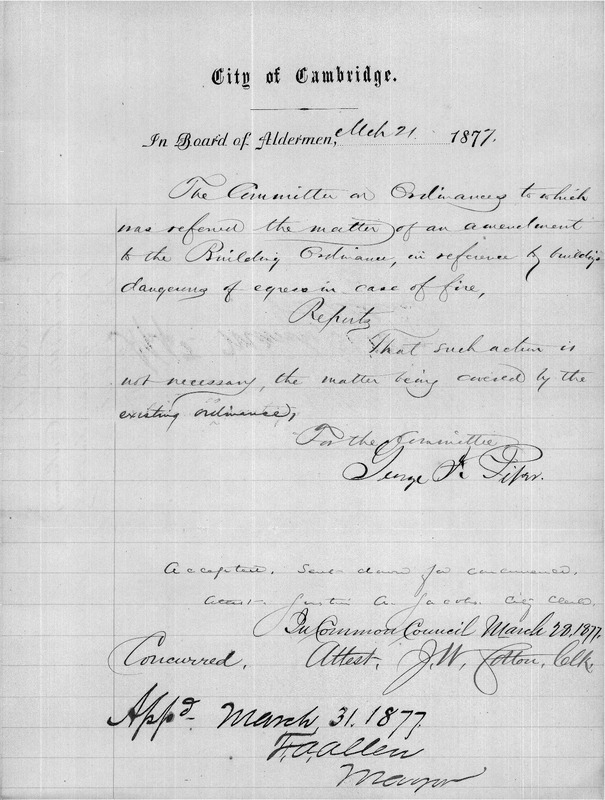 City of Cambridge.
In Board of Aldermen, Mch 21 1877.
The Committee on Ordinances to which
was referred the matter of an amendment
to the Building Ordinance, in reference to buildings
dangerous of egress in case of fire,
Reports
That such action is
not necessary, the matter being covered by the
existing ordinance,
For the Committee
George F. Piper.
Accepted. Sent down for concurrence.
Attest. Justin A. Jacobs. City Clerk.
In Common Council March 28, 1877.
Concurred. Attest, J. W. Cotton, Clk.
Appd March 31. 1877
F. A. Allen
Mayor